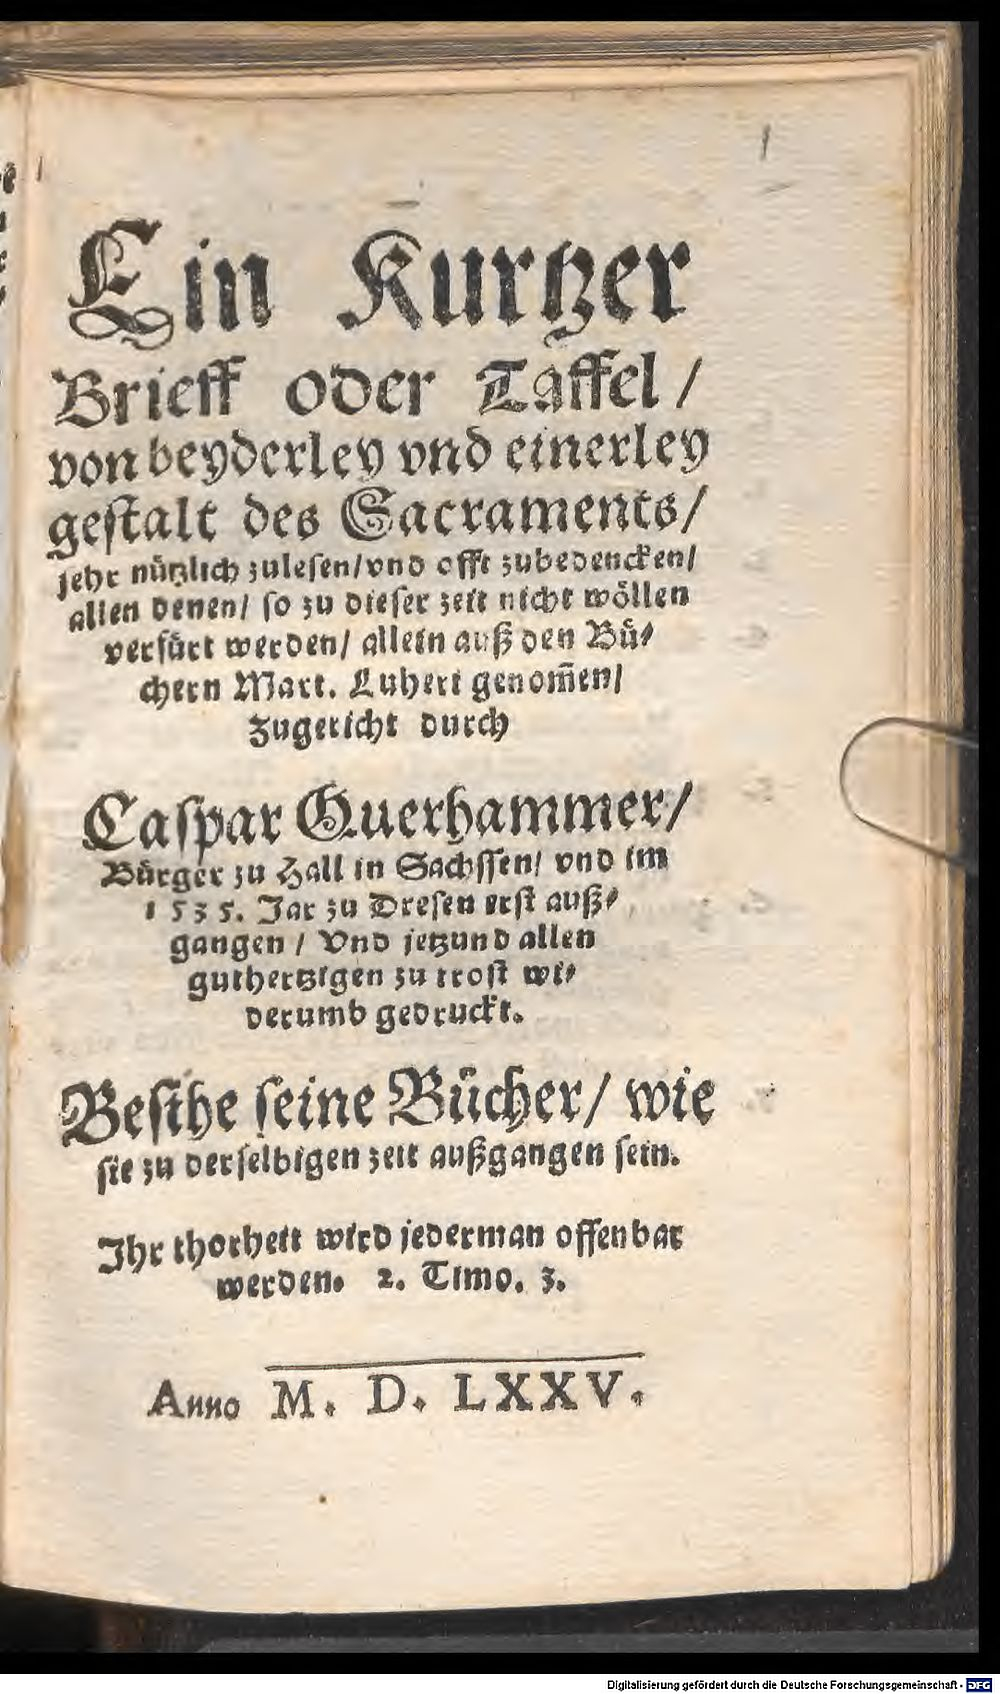 1
Ein Kurtzer
Brieff oder Taffel /
von beyderley vnd einerley
gestalt des Sacraments /
sehr nützlich zulesen / vnd offt zubedencken /
allen denen / so zu dieser zeit nicht wöllen
verfürt werden / allein auß den Bü⸗
chern Mart. Lutheri genom̄en /
Zugericht durch
Caspar Querhammer /
Bürger zu Hall in Sachssen / vnd im
1535. Jar zu Dresen erst auß⸗
gangen / Vnd jetzund allen
guthertzigen zu trost wi⸗
derumb gedruckt.
Besihe seine Bücher / wie
sie zu derselbigen zeit außgangen sein.
Ihr thorheit wird jederman offenbar
werden. 2. Timo. 3.
Anno M. D. LXXV.
Digitalisierung gefördert durch die Deutsche Forschungsgemeinschaft - DFG